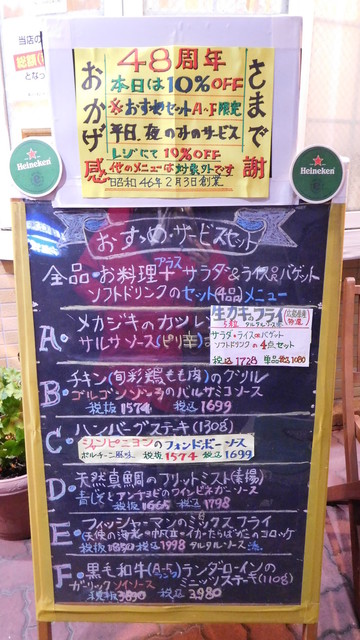 当店の
48周年
おかげ
さまで
感
謝
本日は10%OFF
※おすすめセットA〜F限定
平日、夜のみのサービス
レジにて10%OFF
他のメニューは対象外です
昭和46年2月3日創業
Heineken
Heineken
おすすめ・サービスセット
全品・お料理+プラスサラダ&ライスorバゲット
ソフトドリンクのセット(4品)メニュー
A. メカジキのカツレツ
サルサソース(ピリ辛)
生カキのフライ
サラダ・ライスorバゲット
ソフトドリンクの4点セット
税込1728 単品税込1080
B. チキン(旬彩鶏もも肉)のグリル
ゴルゴンゾーラのバルサミコソース
税抜1574 税込1699
C. ハンバーグステキ(130g)
シャンピニヨンのフォンドボーソース
ポルチーニ風味 税抜1574 税込1699
D. 天然真鯛のフリットミスト(素揚)
青じそとアンチョビのワインビネガーソース
税抜1665 税込1798
E. フィッシャーマンのミックスフライ
税抜1850 税込1998 タルタルソース添
F. 黒毛和牛(A-5ランク)テンダーロインの
ガーリックソイソース ミニッツステーキ(110g)
税込3980